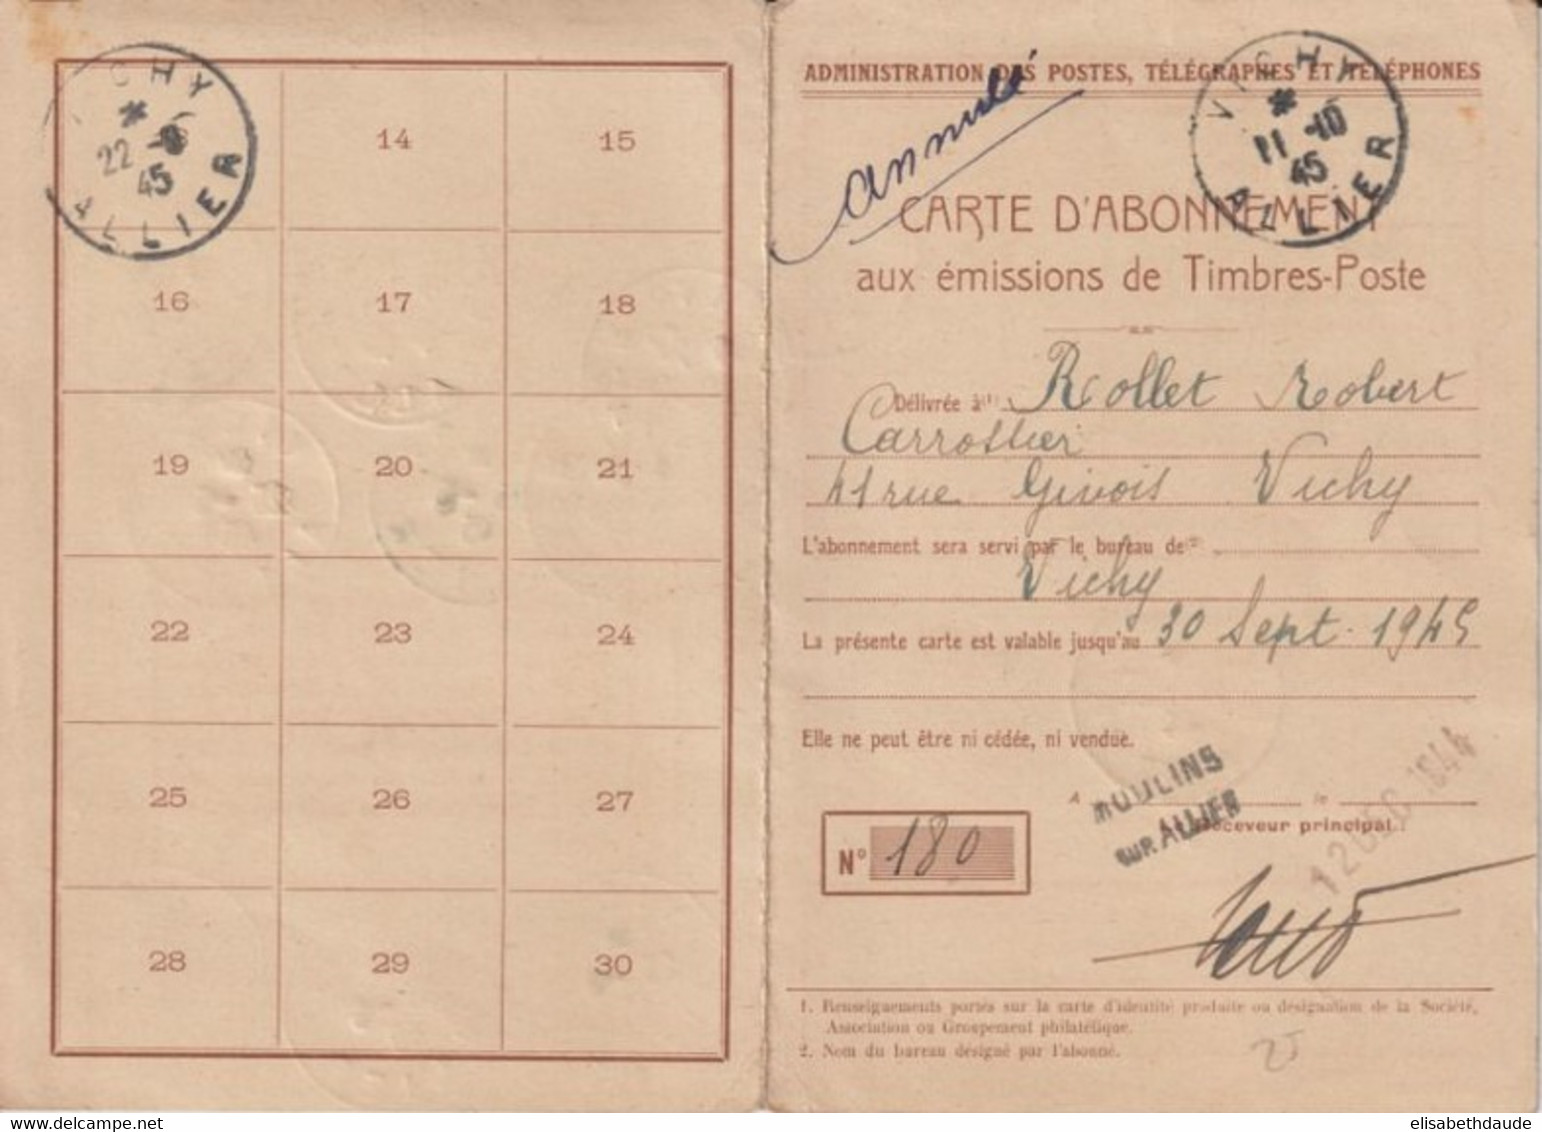 VICHY
22 -8
45
ALLIER
14
15
16
17
18
19
20
21
22
23
24
25
26
27
28
29
30
ADMINISTRATION DES POSTES, TÉLÉGRAPHES ET TÉLÉPHONES
annulé
VICHY
11 -10
45
ALLIER
CARTE D'ABONNEMENT
aux émissions de Timbres-Poste
Délivrée à (1) Rollet Robert
Carrossier
41 rue Givois Vichy
L'abonnement sera servi par le bureau de (2)
Vichy
La présente carte est valable jusqu'au 30 Sept. 1945
Elle ne peut être ni cédée, ni vendue.
MOULINS
SUR ALLIER
A le
12 DEC 1944
receveur principal.
N° 180
1. Renseignements portés sur la carte d'identité produite ou désignation de la Société,
Association ou Groupement philatélique.
2. Nom du bureau désigné par l'abonné.
elisabethdaude